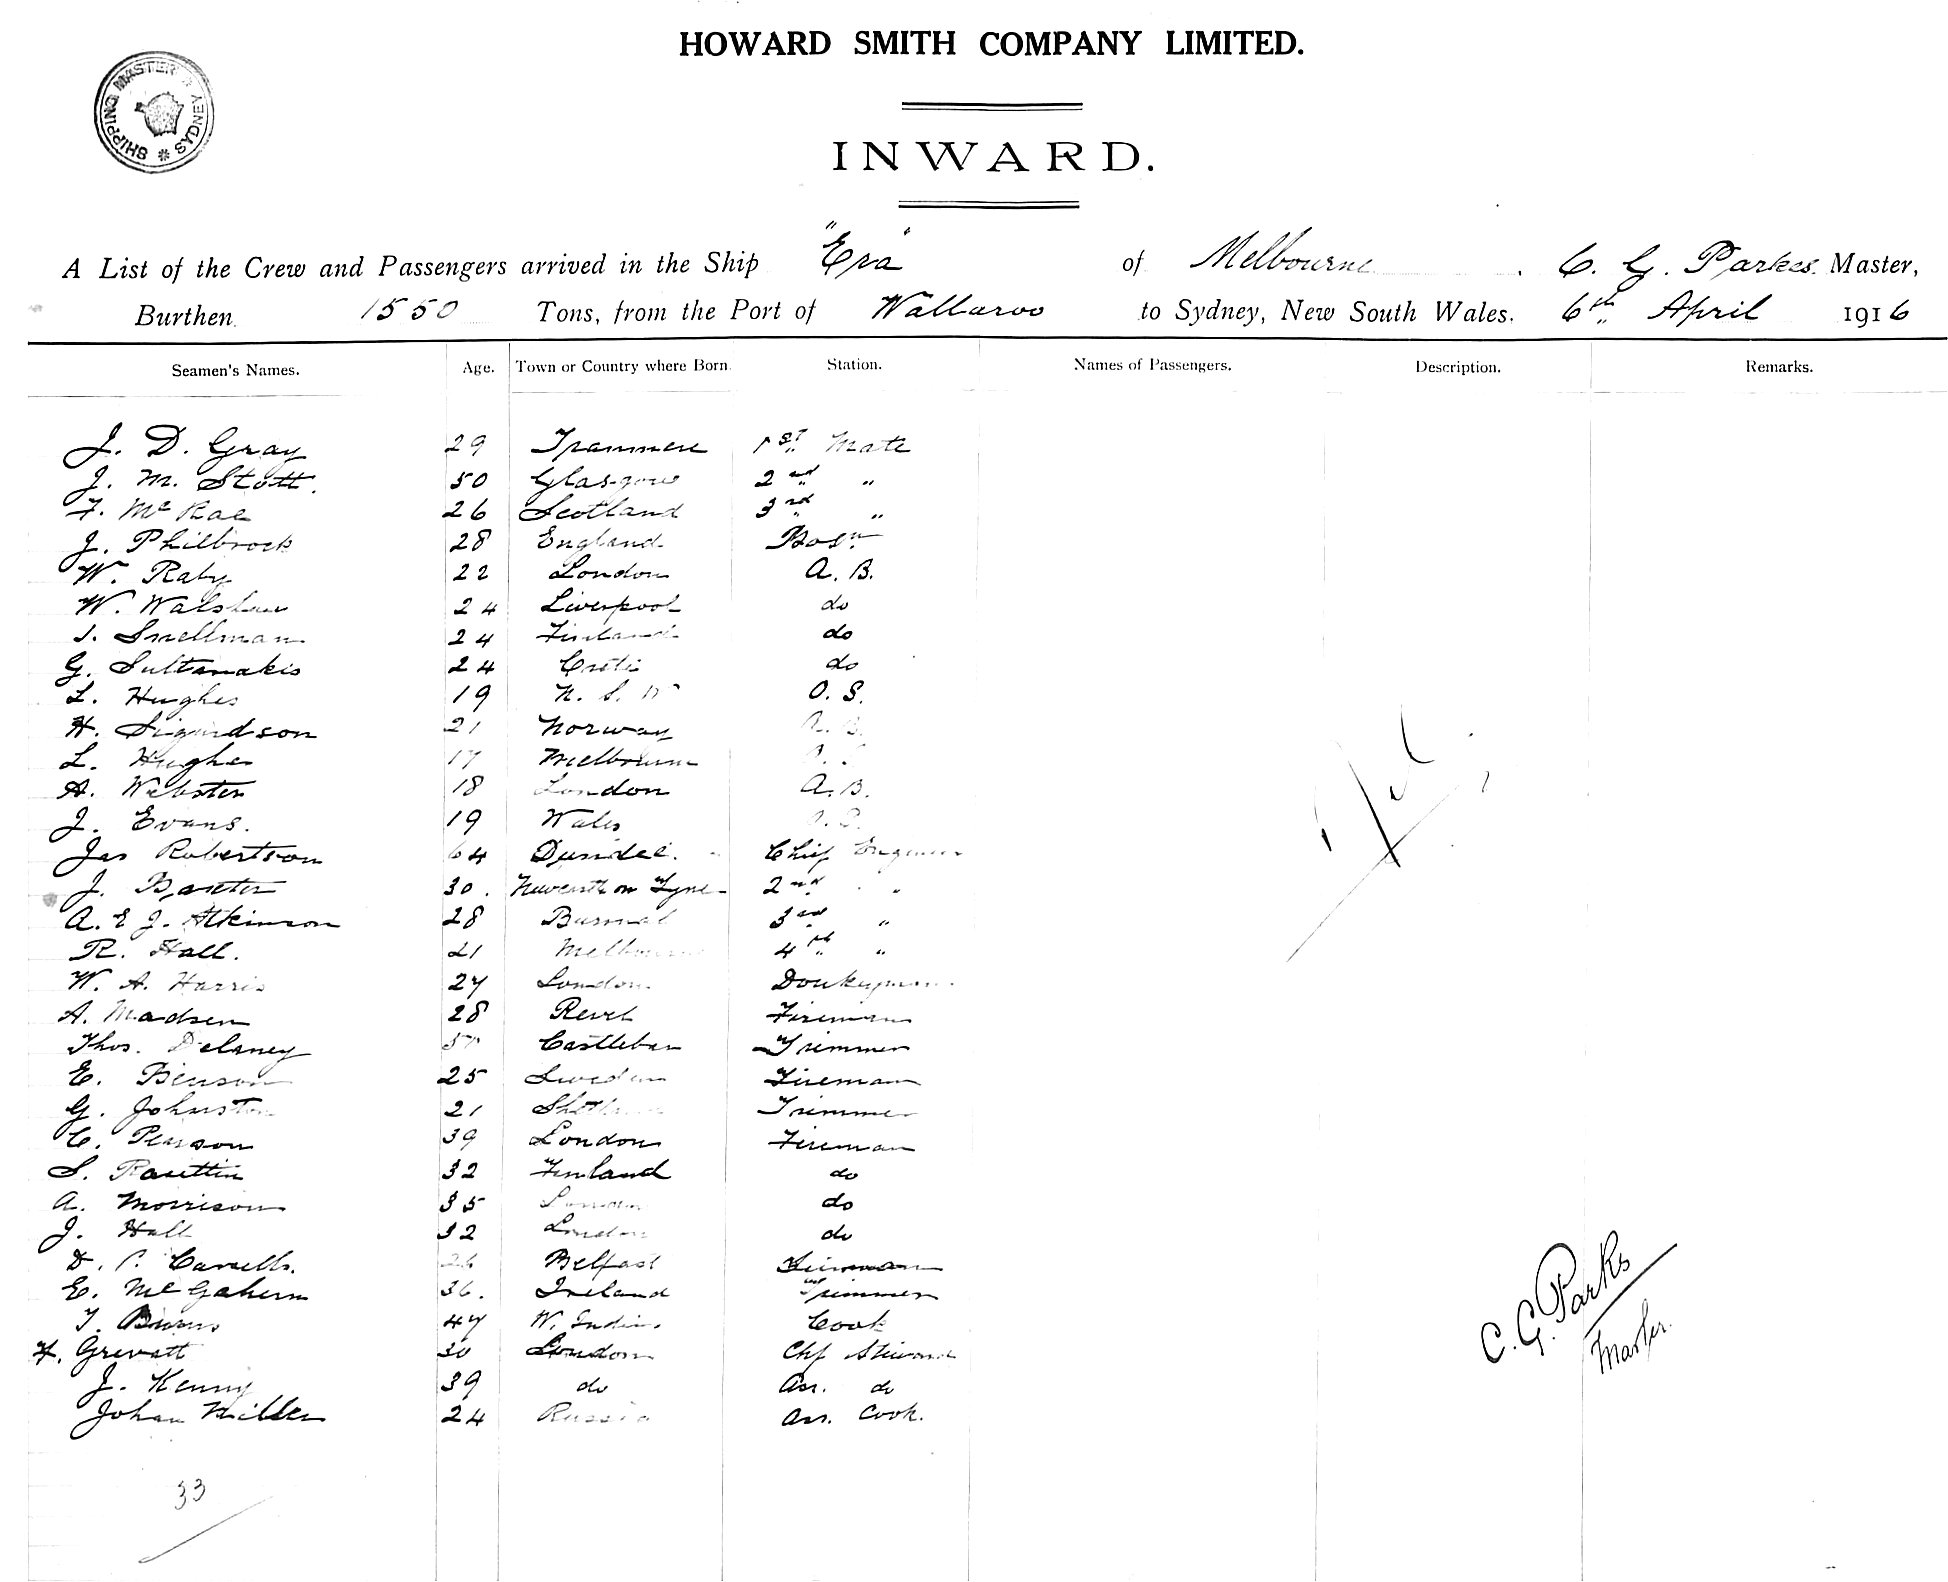 HOWARD SMITH COMPANY LIMITED.
SHIPPING MASTER * SYDNEY *
INWARD.
A List of the Crew and Passengers arrived in the Ship "Era" of Melbourne. C. G. Parkes. Master,
Burthen 1550 Tons, from the Port of Wallaroo to Sydney, New South Wales. 6th April 1916
Seamen's Names. Age. Town or Country where Born. Station. Names of Passengers. Description. Remarks.
J. D. Gray 29 Tranmere 1st Mate
J. M. Stott. 50 Glasgow 2nd "
F. McRae 26 Scotland 3rd "
J. Philbrock 28 England Bosn
W. Raby 22 London A. B.
W. Walshaw 24 Liverpool do
J. Snellman 24 Finland do
G. Sultanakis 24 Crete do
L. Hughes 19 N. S. W O. S.
H. Sigurdson 21 Norway A. B.
L. Hughes 17 Melbourne
A. Webster 18 London A. B.
J. Evans. 19 Wales
Jas Robertson 64 Dundee. Chief Engineer
J. Baxter 30. Newcastle on Tyne 2nd "
A. E J. Atkinson 28 3rd "
R. Hall. 21 Melbourne 4th "
W. A. Harris 27 London Donkeyman
A. Madsen 28 Revel Fireman
Thos. Delaney 57 Castlebar Trimmer
E. Benson 25 Sweden Fireman
G. Johnston 21 Trimmer
C. Pearson 39 London Fireman
S. 32 Finland do
A. Morrison 35 London do
J. Hall 32 London do
D. 26 Belfast Fireman
E. McGahern 36. Ireland Trimmer
T. Burns 47 W. Indies Cook
H. Grevatt 30 London Chf Steward
J. Kenny 39 do Ass. do
Johan Miller 24 Russia Ass. Cook.
33
C. G. Parks
Master.